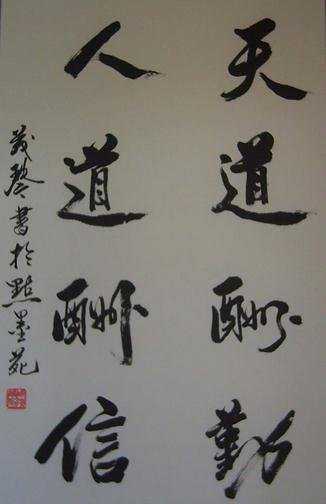 天道酬勤
人道酬信
茂琴書於點墨苑